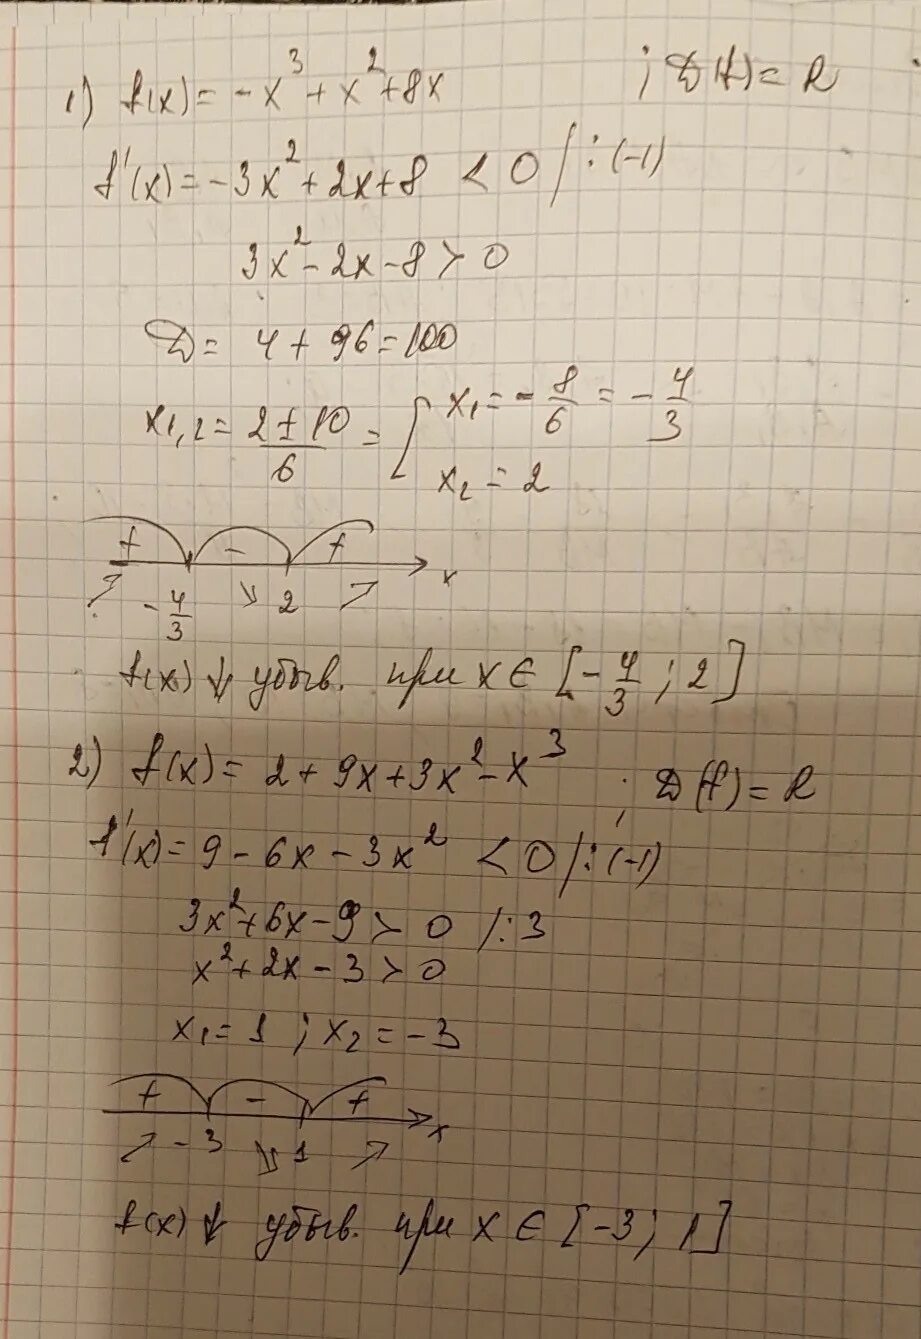 1) f(x) = -x³ + x² + 8x ; D(f) = R
f'(x) = -3x² + 2x + 8 < 0 /: (-1)
3x² - 2x - 8 > 0
D = 4 + 96 = 100
x₁,₂ = (2 ± 10)/6 = [ x₁ = -8/6 = -4/3
x₂ = 2
+ - +
-4/3 ↘ 2 ↗ x
f(x) ↓ убыв. при x ∈ [-4/3 ; 2]
2) f(x) = 2 + 9x + 3x² - x³ ; D(f) = R
f'(x) = 9 - 6x - 3x² < 0 /: (-1)
3x² + 6x - 9 > 0 /: 3
x² + 2x - 3 > 0
x₁ = 1 ; x₂ = -3
+ - +
↗ -3 ↘ 1 ↗ x
f(x) ↓ убыв. при x ∈ [-3 ; 1]